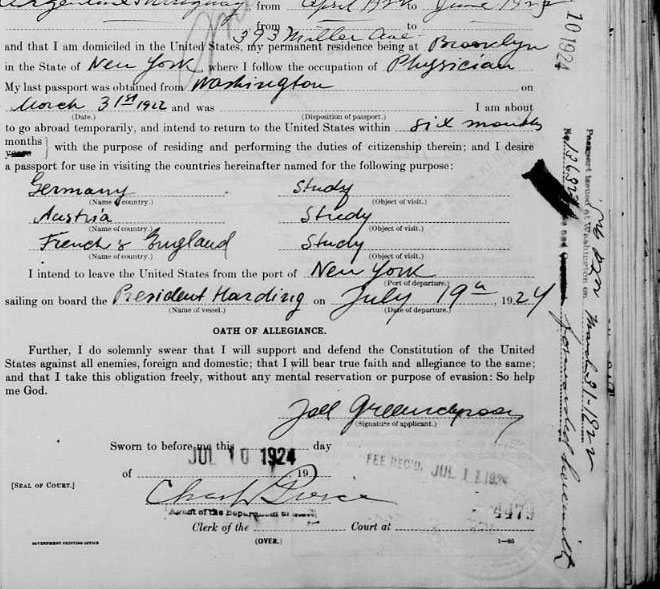 Argentine Uruguay from April 1922 to June 1922
from to
393 Miller Ave
and that I am domiciled in the United States, my permanent residence being at Brooklyn
in the State of New York where I follow the occupation of Physician
My last passport was obtained from Washington on
March 31st 1922 and was I am about
(Date.) (Disposition of passport.)
to go abroad temporarily, and intend to return to the United States within six months
months
years } with the purpose of residing and performing the duties of citizenship therein; and I desire
a passport for use in visiting the countries hereinafter named for the following purpose:
Germany Study
(Name of country.) (Object of visit.)
Austria Study
(Name of country.) (Object of visit.)
French & England Study
(Name of country.) (Object of visit.)
I intend to leave the United States from the port of New York
(Port of departure.)
sailing on board the President Harding on July 19th, 1924
(Name of vessel.) (Date of departure.)
OATH OF ALLEGIANCE.
Further, I do solemnly swear that I will support and defend the Constitution of the United
States against all enemies, foreign and domestic; that I will bear true faith and allegiance to the same;
and that I take this obligation freely, without any mental reservation or purpose of evasion: So help
me God.
(Signature of applicant.)
Sworn to before me this day
JUL 10 1924
of 19
FEE REC'D, JUL 11 1924
[SEAL OF COURT.]
Agent of the Department of State
Clerk of the Court at
GOVERNMENT PRINTING OFFICE (OVER.) 1—85
10 1924
Passport issued at Washington on March 31-1922
No.
forwarded herewith